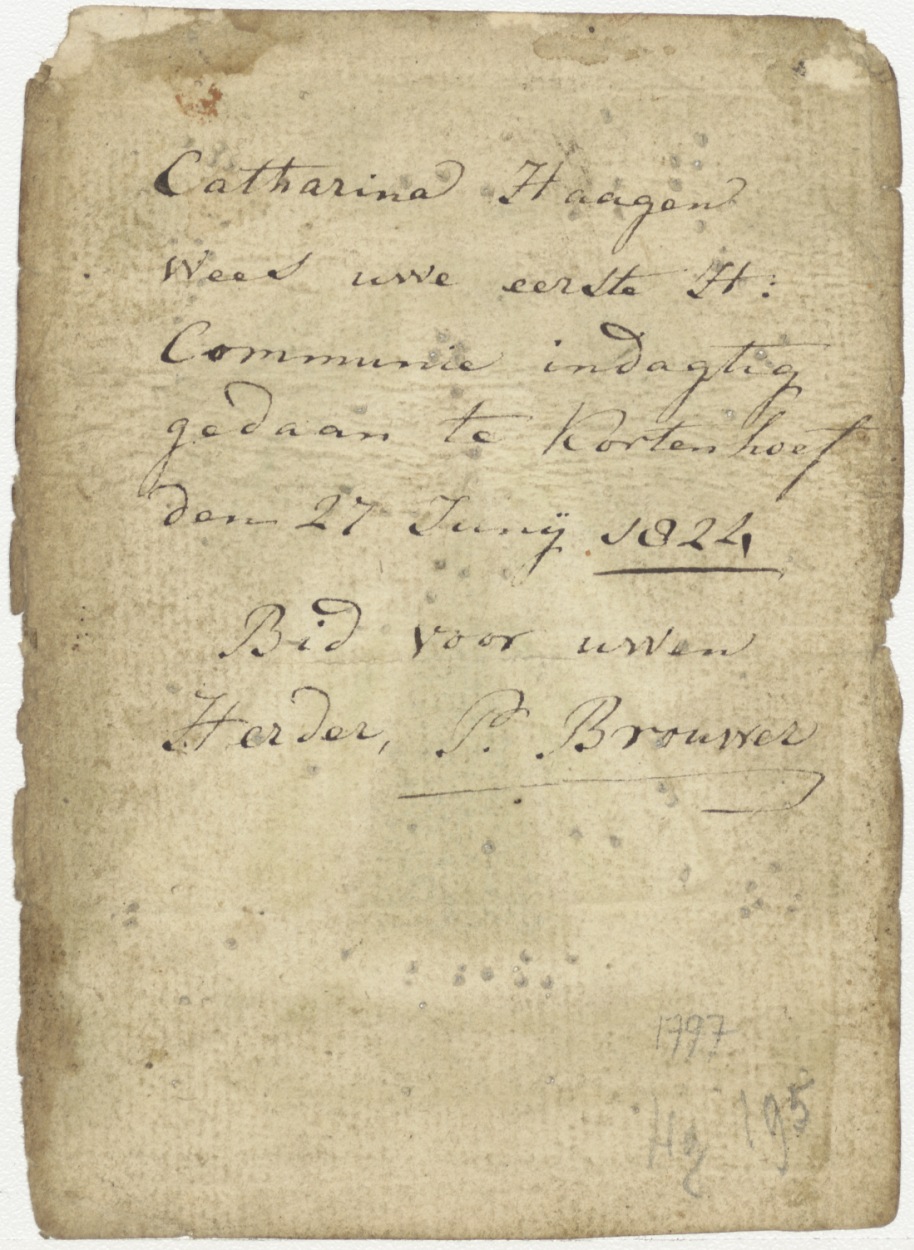 Catharina Haagen
Wees uwe eerste H:
Communie indagtig
gedaan te Kortenhoef
den 27 Junÿ 1824
Bid voor uwen
Herder, P. Brouwer
1797
Hg 195